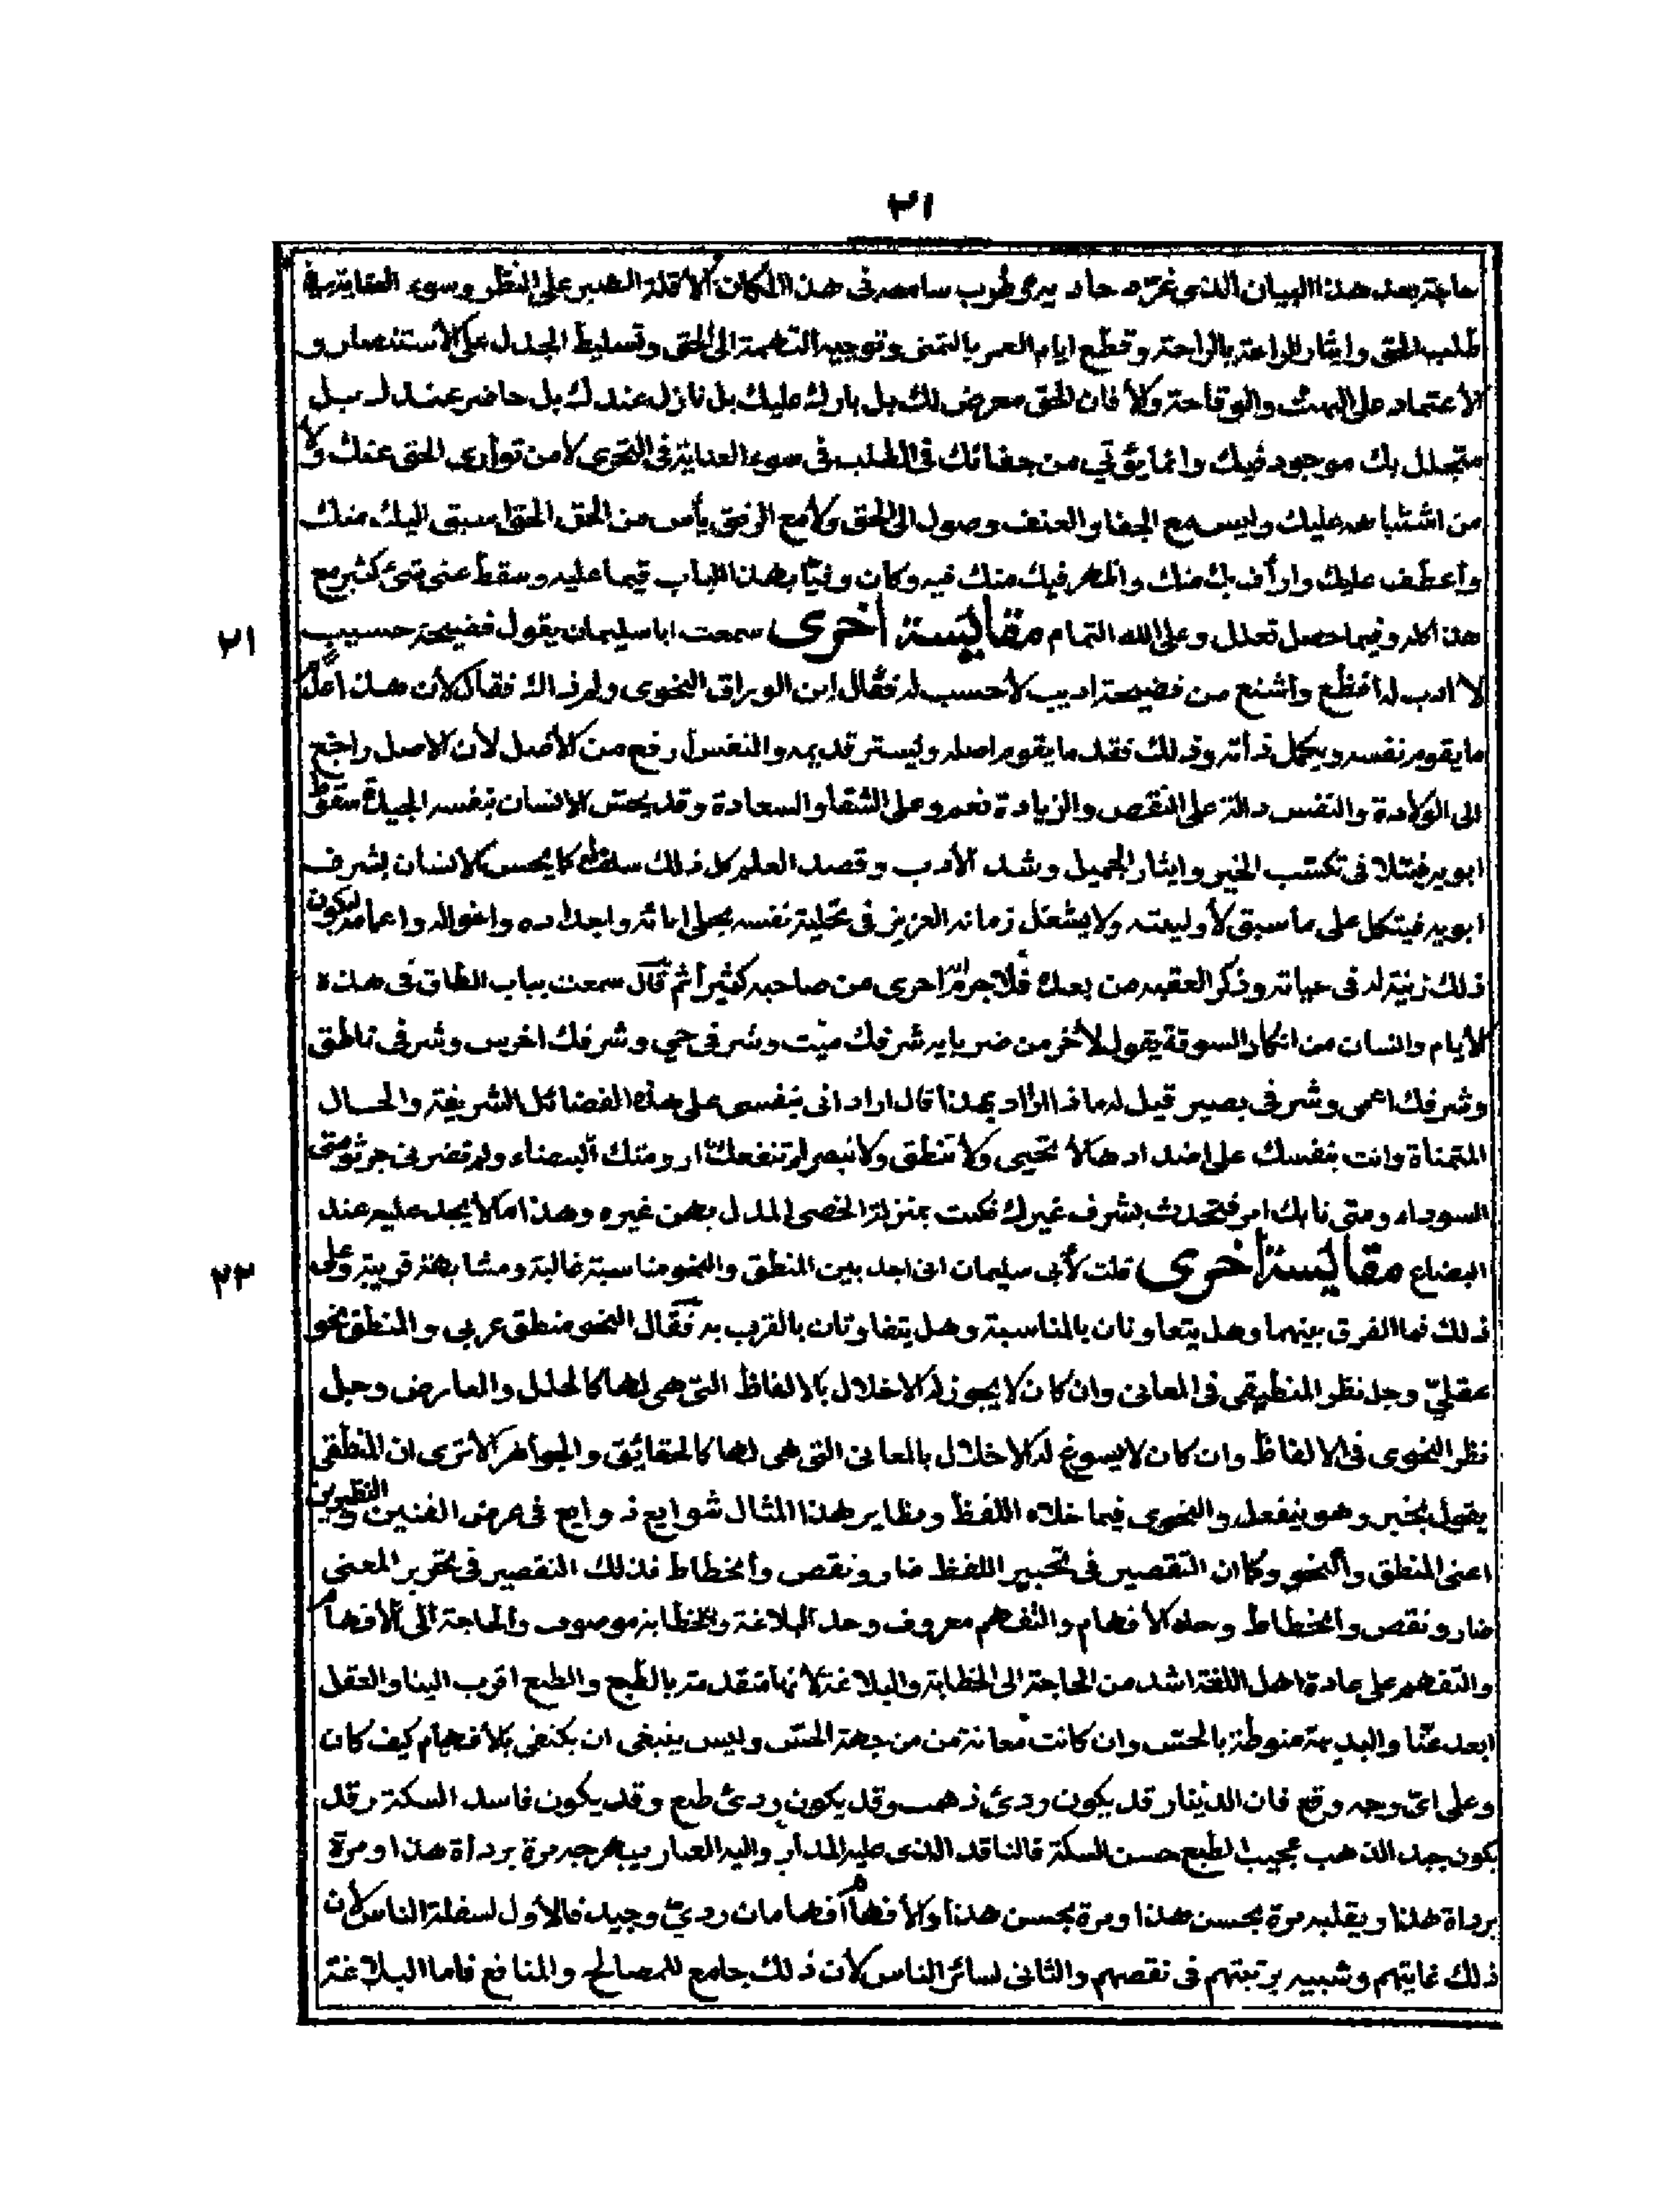 ٢١
حاجة بعد هذا البيان الذى غرّد حاد يه وطرب سامعه فى هذا المكان الا قلة الصبر على النظر وسوء العناية فى
طلب الحق وايثار الراحة وقطع ايام العمر بالتمنى وتوجيه التهمة الى الحق وتسليط الجدل على الاستنصار و
الاعتماد على البهت والوقاحة والا فان الحق معرض لك بل بارك عليك بل نازل عندك بل حاضر عندك بل
متجلل بك موجود فيك وانما يؤتي من جفائك فى الطلب فى سوء العناية فى التحرى لا من توارى الحق عنك ولا
من اشتباهه عليك وليس مع الجفا والعنف وصول الى الحق ولا مع الرفق يأس من الحق الحق اسبق اليك منك
وأعطف عليك وارأف بك منك واظهر فيك منك فيه وكان وفيّا بهذا الباب قيما عليه وسقط عنى شئ كثير مع
هذا كله وفيما حصل تعلل وعلى الله التمام مقايسة أخرى سمعت ابا سليمان يقول فضيحة حسيب
٢١
لا ادب له افظع واشنع من فضيحة اديب لا حسب له فقال ابن الوراق النحوى ولم ذاك فقال لأن هذا عدم
ما يقوم نفسه ويجمل ذاته وذلك فقد ما يقوم اصله وليستر قديمه والنفس أرفع من الأصل لأن الاصل راجع
الى الولادة والنفس دالة على النقص والزيادة نعم وعلى الشقا والسعادة وقد يحس الانسان بنفسه الجيدة سقوط
ابويه فيتلافى تكسب الخير وايثار الجميل وشد الأدب وقصد العلم كل ذلك ساقطا كما يحس الانسان بشرف
ابويه فيتكل على ما سبق لأوليته ولا يشغل زمانه العزيز فى تحلية نفسه بحلى آبائه واجداده واخواله واعمامه ليكون
ذلك زينة له فى حياته وذكر العقبه من بعده فلا جرم احرى من صاحبه كثيرا ثم قال سمعت بباب الطاق فى هذه
الأيام وانسان من انكار السوقة يقول لأخر من ضربايه شرفك ميّت وشرفى حي وشرفك اخرس وشرفى ناطق
وشرفك اعمى وشرفى بصير قيل له ماذا اراد بهذا قال اراد انى بنفسى على هذه الفضائل الشريفة والحال
المتمناة وانت بنفسك على اضدادها لا تحيى ولا تنطق ولا تبصر لم تنفعك ارومتك البيضاء ولم تضرنى جرثومتى
السوداء ومتى نابك امر فتحدث بشرف غيرك فكنت بمنزلة الخصى المدل بهن غيره وهذا ما لا يجد عليه عند
البضاع مقايسة أخرى قلت لأبى سليمان انى اجد بين المنطق والنحو مناسبة غالبة ومشابهة قريبة وعلى
٢٢
ذلك فما الفرق بينهما وهل يتعاونان بالمناسبة وهل يتفاوتان بالقرب به فقال النحو منطق عربى والمنطق نحو
عقليّ وجل نظر المنطيقى فى المعانى وان كان لا يجوز له الاخلال بالالفاظ التى هى لها كالحلل والمعارض وجل
نظر النحوى فى الالفاظ وان كان لا يسوغ له الاخلال بالمعانى التى هى لها كالحقائق والجواهر الا ترى ان المنطقى
يقول يخبر وهو ينفعل والنحوى فيما خلاه اللفظ ونظاير هذا المثال شوايع ذوايع فى عرض الفنين وبين النظيرين
اعنى المنطق والنحو وكما ان التقصير فى تحبير اللفظ ضار ونقص وانحطاط فذلك التقصير فى تحرير المعنى
ضار ونقص وانحطاط وحد الأفهام والتفهم معروف وحد البلاغة والخطابة موصوف والحاجة الى الأفهام
والتفهم على عادة اهل اللغة اشد من الحاجة الى الخطابة والبلاغة لانها متقدمة بالطبع والطبع اقرب الينا والعقل
ابعد عنّا والبديهة منوطة بالحس وان كانت معانة من من جهة الحس وليس ينبغى ان يكتفى بالأفهام كيف كان
وعلى اىّ وجه وقع فان الدينار قد يكون ردئ ذهب وقد يكون ردئ طبع وقد يكون فاسد السكة وقد
يكون جيد الذهب عجيب الطبع حسن السكة فالناقد الذى عليه المدار واليه العيار يبهرجه مرة برداة هذا ومرة
برداة هذا ويقلبه مرة بحسن هذا ومرة بحسن هذا والأفهام أفهامان رديّ وجيد فالأول لسفلة الناس لأن
ذلك غايتهم وشبيه برتبتهم فى نقصهم والثانى لسائر الناس لأن ذلك جامع للمصالح والمنافع فاما البلاغة